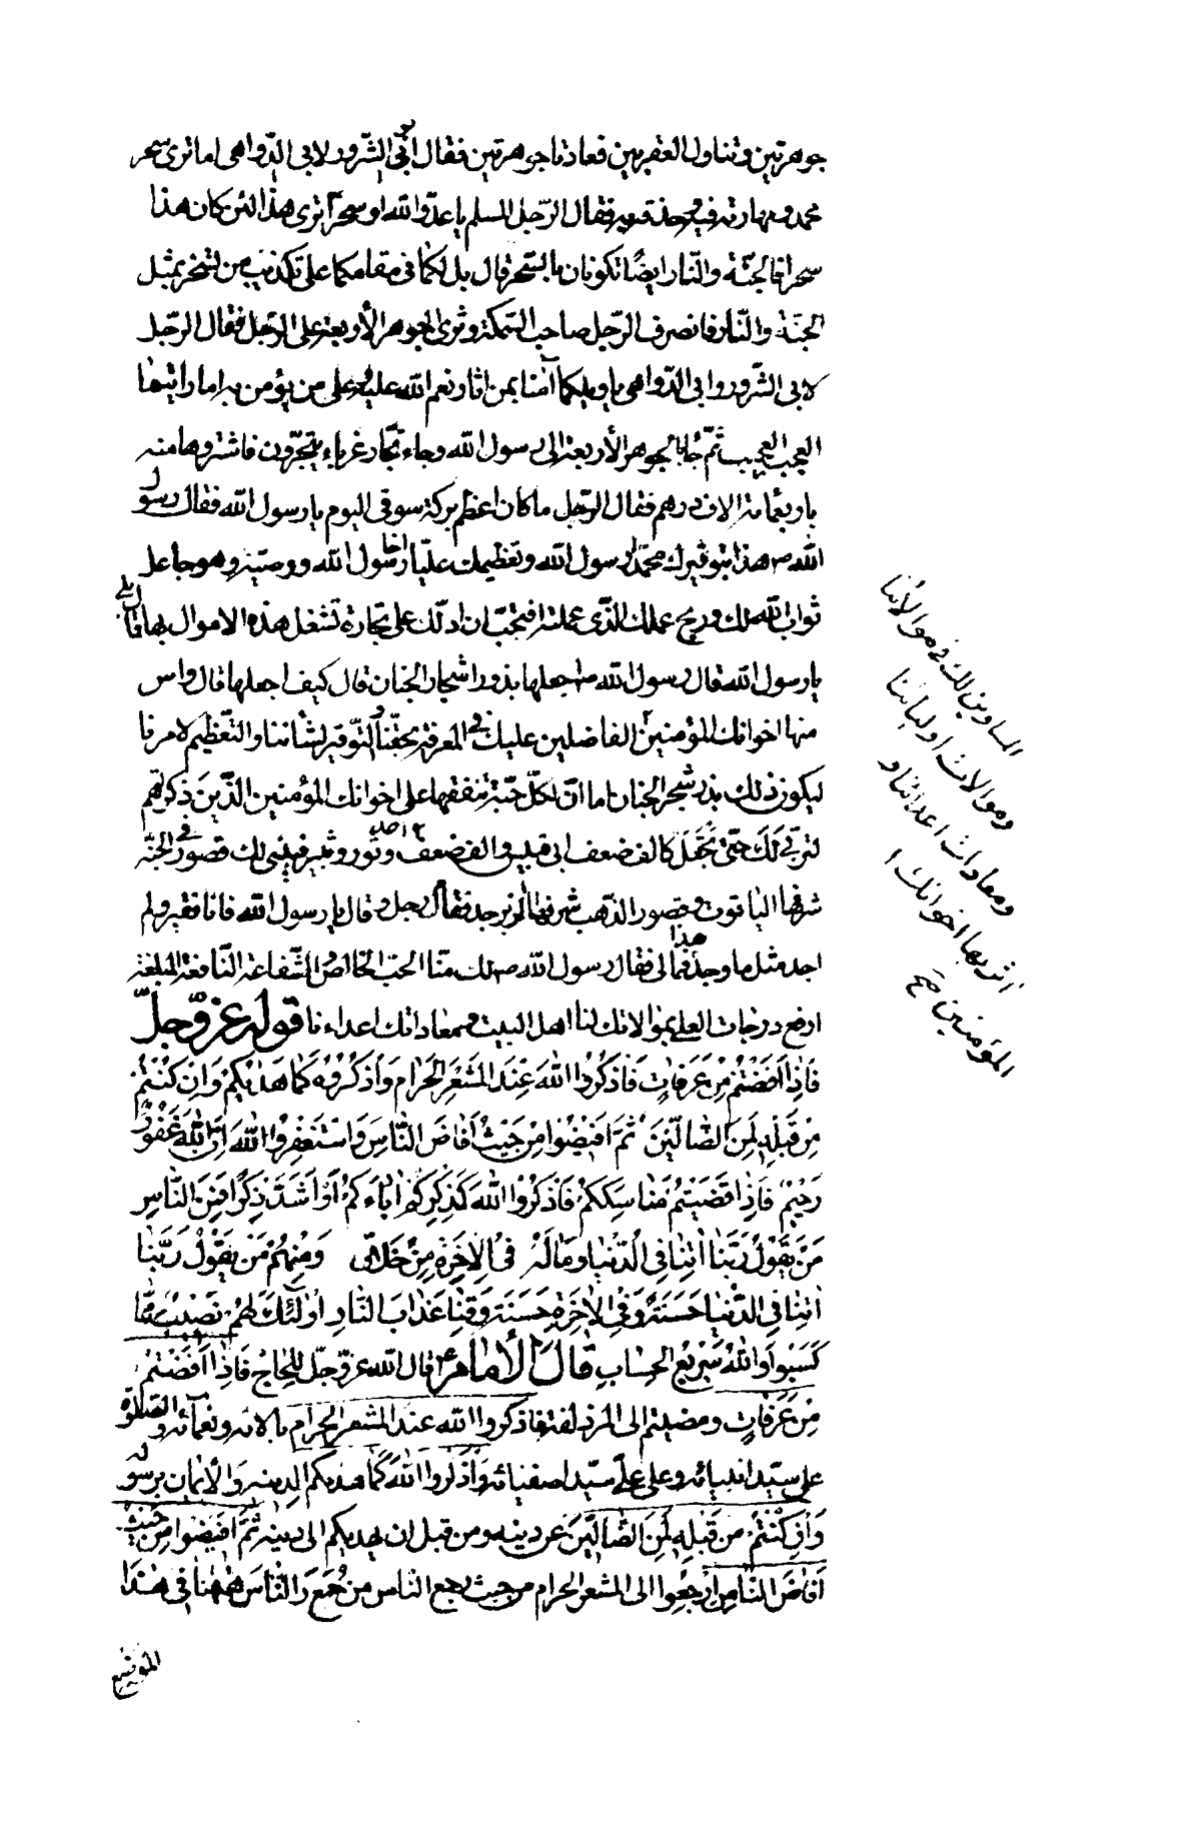 جوهرتين وتناول العقربين فعادتا جوهرتين فقال أبو الشرور لابى الدواهى اما ترى سحر
محمد ومهارته فيه وحذقه به فقال الرجل المسلم يا عدو الله او سحرا ترى هذا لئن كان هذا
سحرا فالجنة والنار ايضا تكونان بالسحر قال بل لكما فى مقامكما على تكذيب من لسخر بمثل
الجنة والنار فانصرف الرجل صاحب السمكة وترك الجوهر الأربعة على الرجل فقال الرجل
لابى الشرور وابى الدواهى يا ويلكما آمنا بمن اثار نعم الله عليه وعلى من يؤمن به اما رايتما
العجب العجيب ثم جاء بالجوهر الأربعة الى رسول الله وجاء تجار غرباء يتجرون فاشتروها منه
باربعمائة الاف درهم فقال الرجل ما كان اعظم بركة سوقى اليوم يا رسول الله فقال رسول
الله ص هذا بتوقيرك محمدا رسول الله وتعظيمك عليا اخا رسول الله ووصيه وهو عاجل
ثواب الله لك وربح عملك الذى عملته افتحب ان ادلك على تجارة تشغل هذه الاموال بها قال بلى
يا رسول الله قال رسول الله ص اجعلها بذور اشجار الجنان قال كيف اجعلها قال واس
منها اخوانك المؤمنين الفاضلين عليك فى المعرفة بحقنا والتوقير لشاننا والتعظيم لامرنا
ليكون ذلك بذر شجر الجنان اما ان كل حبة تنفقها على اخوانك المؤمنين الذين ذكرتهم
لتربى لك حتى تجعل كالف ضعف ابى قبيس والف ضعف احد وثور وثبير فيبنى لك قصور فى الجنة
شرفها الياقوت وقصور الذهب شرفها الزبرجد فقال رجل وقال يا رسول الله فانا فقير ولم
اجد مثل ما وجد هذا فمالى فقال رسول الله ص لك منا الحب الخالص الشفاعة النافعة المبلغة
ارفع درجات العلى بموالاتك لنا اهل البيت ومعاداتك اعداءنا قوله عز وجل
فَاِذا اَفَضْتُمْ مِنْ عَرَفاتٍ فَاذْكُرُوا اللهَ عِنْدَ المَشْعَرِ الحَرامِ وَاذْكُرُوهُ كَما هَداكُمْ وَاِنْ كُنْتُمْ
مِنْ قَبْلِهِ لَمِنَ الضّالّينَ ثُمَّ اَفيضُوا مِنْ حَيْثُ اَفاضَ النّاسُ وَاسْتَغْفِرُوا اللهَ اِنَّ اللهَ غَفُورٌ
رَحيمٌ فَاِذا قَضَيْتُمْ مَناسِكَكُمْ فَاذْكُرُوا اللهَ كَذِكْرِكُمْ اباءَكُمْ اَوْ اَشَدَّ ذِكْرًا فَمِنَ النّاسِ
مَنْ يَقُولُ رَبَّنا اتِنا فِى الدُّنْيا وَمالَهُ فِى الاخِرَةِ مِنْ خَلاقٍ وَمِنْهُمْ مَنْ يَقُولُ رَبَّنا
اتِنا فِى الدُّنْيا حَسَنَةً وَفِى الاخِرَةِ حَسَنَةً وَقِنا عَذابَ النّارِ اُولئِكَ لَهُمْ نَصيبٌ مِمّا
كَسَبُوا وَاللهُ سَريعُ الحِسابِ قال الأمام ع قال الله عز وجل للحاج فَاِذا اَفَضْتُمْ
مِنْ عَرَفاتٍ ومضيتم الى المزدلفة فاذكروا الله عند المشعر الحرام بالائه ونعمائه والصلوة
على سيد انبيائه وعلى على سيد اصفيائه وَاذْكُرُوا اللهَ كَما هداكم لدينه والأيمان برسوله
وَاِنْ كُنْتُمْ مِنْ قَبْلِهِ لَمِنَ الضّالّينَ عن دينه من قبل ان يهديكم الى دينه ثُمَّ اَفيضُوا مِنْ حَيْثُ
اَفاضَ النّاسُ اِرجعوا الى المشعر الحرام من حيث رجع الناس من جُمَع وَالنّاسُ ههنا فى هذا
الموضع
المساوين لك فى موالاتنا
وموالات اوليائنا
ومعادات اعدائنا و
اثر بها اخوانك ا
المؤمنين صح